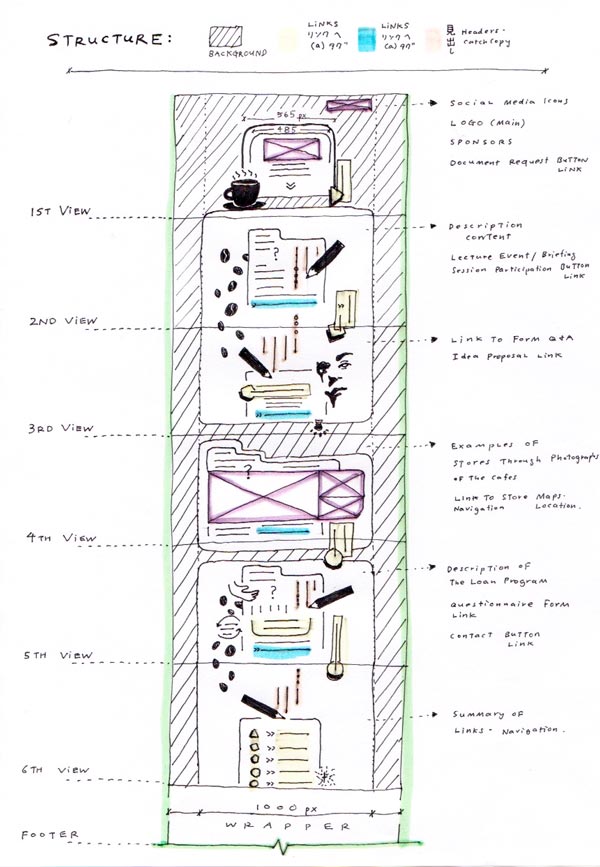 STRUCTURE:
BACKGROUND
LINKS
リンクへ
(a) タグ
LINKS
リンクへ
(a) タグ
見出し
Headers-
Catchcopy
565 px
485
Social Media Icons
LOGO (Main)
SPONSORS
Document Request Button
Link
1ST VIEW
Description
Content
Lecture Event/Briefing
Session Participation Button
Link
?
2ND VIEW
Link To Form Q&A
Idea Proposal Link
3RD VIEW
Examples of
Stores Through Photographs
of The Cafes
Link To Store Maps-
Navigation Location.
?
4TH VIEW
Description of
The Loan Program
Questionnaire Form
Link
Contact Button
Link
?
5TH VIEW
Summary of
Links - Navigation.
6TH VIEW
1000 px
WRAPPER
FOOTER